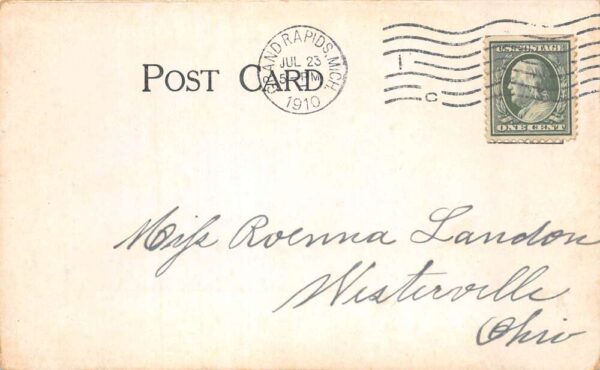 POST CARD
GRAND RAPIDS, MICH.
JUL 23
5 PM
1910
1
C
U.S. POSTAGE
ONE CENT
Miss Roenna Landon
Westerville
Ohio